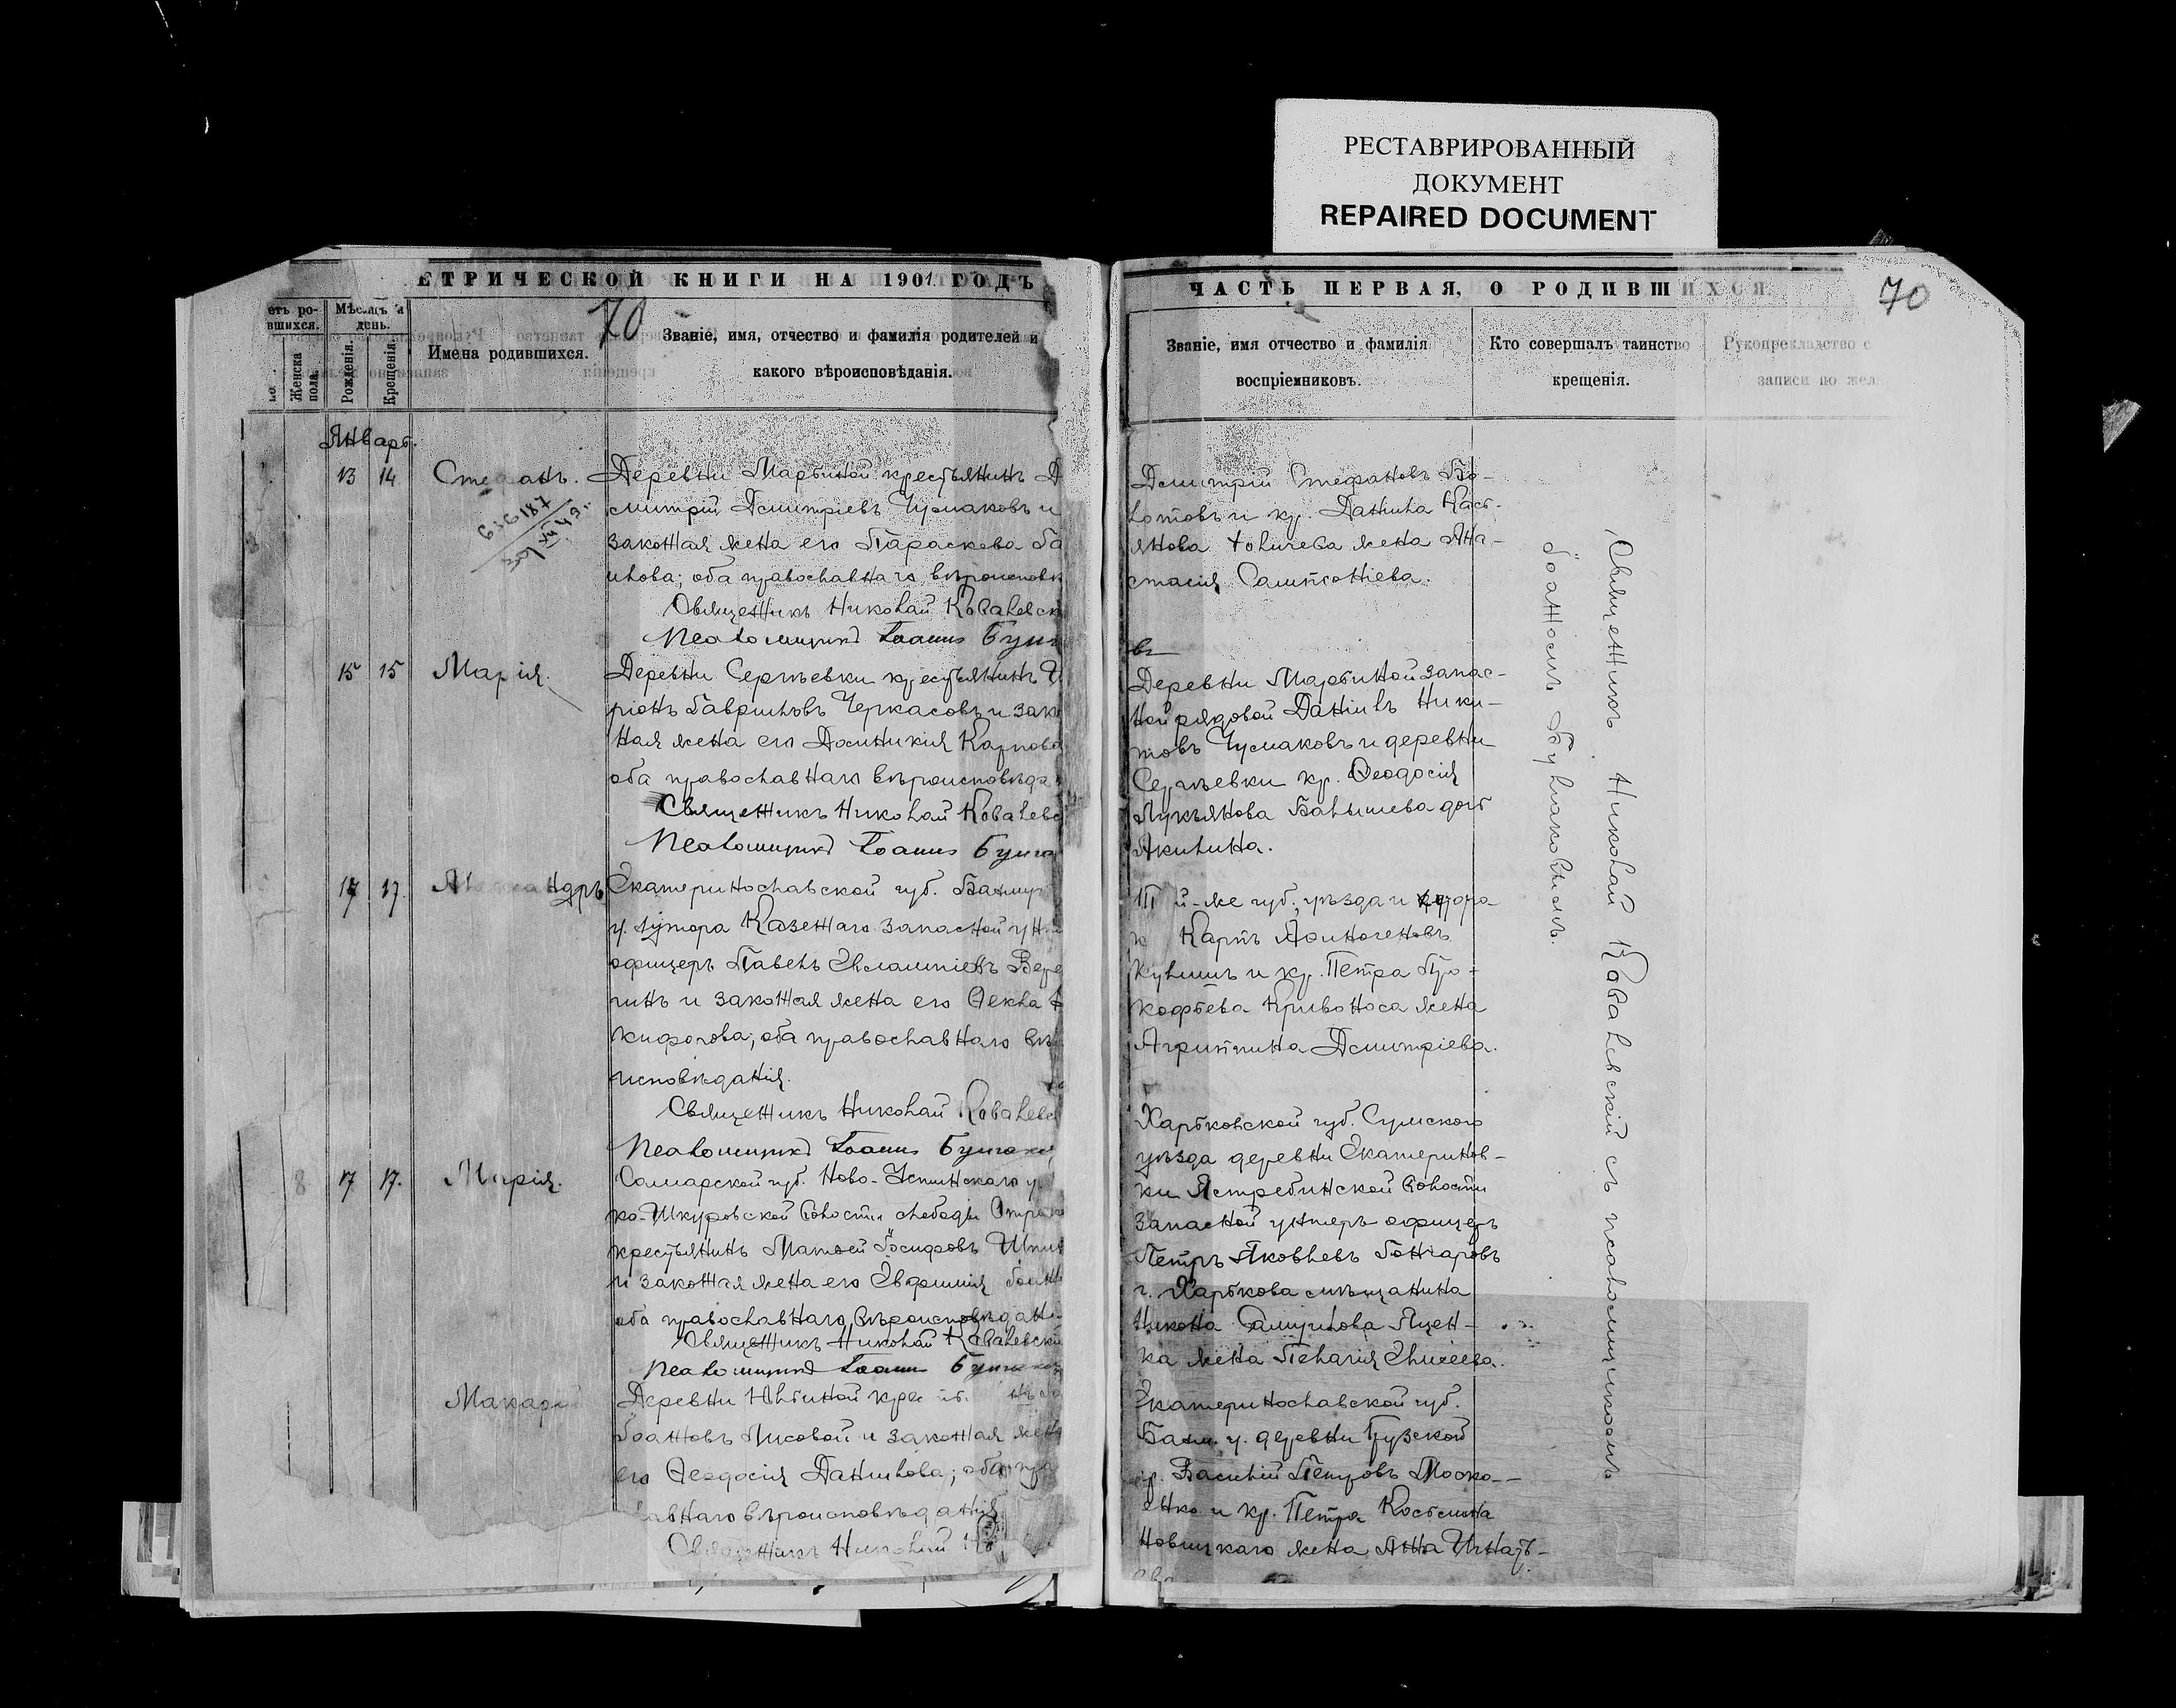 РЕСТАВРИРОВАННЫЙ
ДОКУМЕНТ
REPAIRED DOCUMENT
ЕТРИЧЕСКОЙ КНИГИ НА 1901 ГОДЪ
70
етъ ро-
вшихся.
Женска
пола.
Мѣсяцъ и
день.
Рожденія.
Крещенія.
Имена родившихся.
Званіе, имя, отчество и фамилія родителей и
какого вѣроисповѣданія.
Январь.
13 14 Стефанъ. Деревни Марьиной крестьянинъ Д
636187
митрій Дмитріевъ Чумаковъ и
законная жена его Параскева Да
илова; оба православнаго вѣроисповѣ
Священникъ Николай Ковалевск
Псаломщикъ Іоаннъ Бул
15 15 Марія. Деревни Сергѣевки крестьянинъ И
ріонъ Гавриловъ Черкасовъ и зак
ная жена его Домникія Карпова
оба православнаго вѣроисповѣда
Священникъ Николай Ковалевс
Псаломщикъ Іоаннъ Булга
17 17. Александръ Екатеринославской губ. Бахму
у. хутора Казеннаго запасной ун
офицеръ Павелъ Евлампіевъ Вере
гинъ и законная жена его Ѳекла
кифорова; оба православнаго вѣ
исповѣданія.
Священникъ Николай Ковалевс
Псаломщикъ Іоаннъ Булгако
8 17 17. Марія. Самарской губ. Ново-Узинскаго у
ко-Шкуровской волости слободы
крестьянинъ Матвей Іосифовъ
и законная жена его Евфимія
оба православнаго вѣроисповѣдані
Священникъ Николай Ковалевскі
Псаломщикъ Іоаннъ Булгаков
Макарі Деревни Юльиной
Іоанновъ Лисовой и законная жена
его Ѳеодосія Данилова; оба пра
лавнаго вѣроисповѣданія.
Священникъ Николай
ЧАСТЬ ПЕРВАЯ, О РОДИВШИХСЯ.
70
Званіе, имя отчество и фамилія
воспріемниковъ.
Кто совершалъ таинство
крещенія.
Рукоприкладство с
записи по жел
Дмитрій Стефановъ Бо-
лотовъ и кр. Данила Кась-
янова жена Ана-
стасія Сампсоніева.
въ
Деревни Марьиной запас-
ной рядовой Даніилъ Ники-
товъ Чумаковъ и деревни
Сергѣевки кр. Ѳеодосія
Лукьянова Балышева дочь
Акилина.
й-же губ., уѣзда и хутора
Карпъ
и кр. Петра Про-
кофьева Кривоноса жена
Агриппина Дмитріева.
Харьковской губ. Сумскаго
уѣзда деревни Екатеринов-
ки Ястребинской волости
запасной унтеръ-офицеръ
Петръ Яковлевъ Гончаровъ
г. Харькова мѣщанина
Никона Самуилова Яцен-
ка жена Пелагія Елисеева.
Екатеринославской губ.
Бахм. у. деревни Грузской
кр. Василій Петровъ Моско-
енко и кр. Петра Косьмина
Новицкаго жена Анна Игнать-
ева
Священникъ Николай Ковалевскій съ псаломщикомъ
Іоанномъ Булгаковымъ.